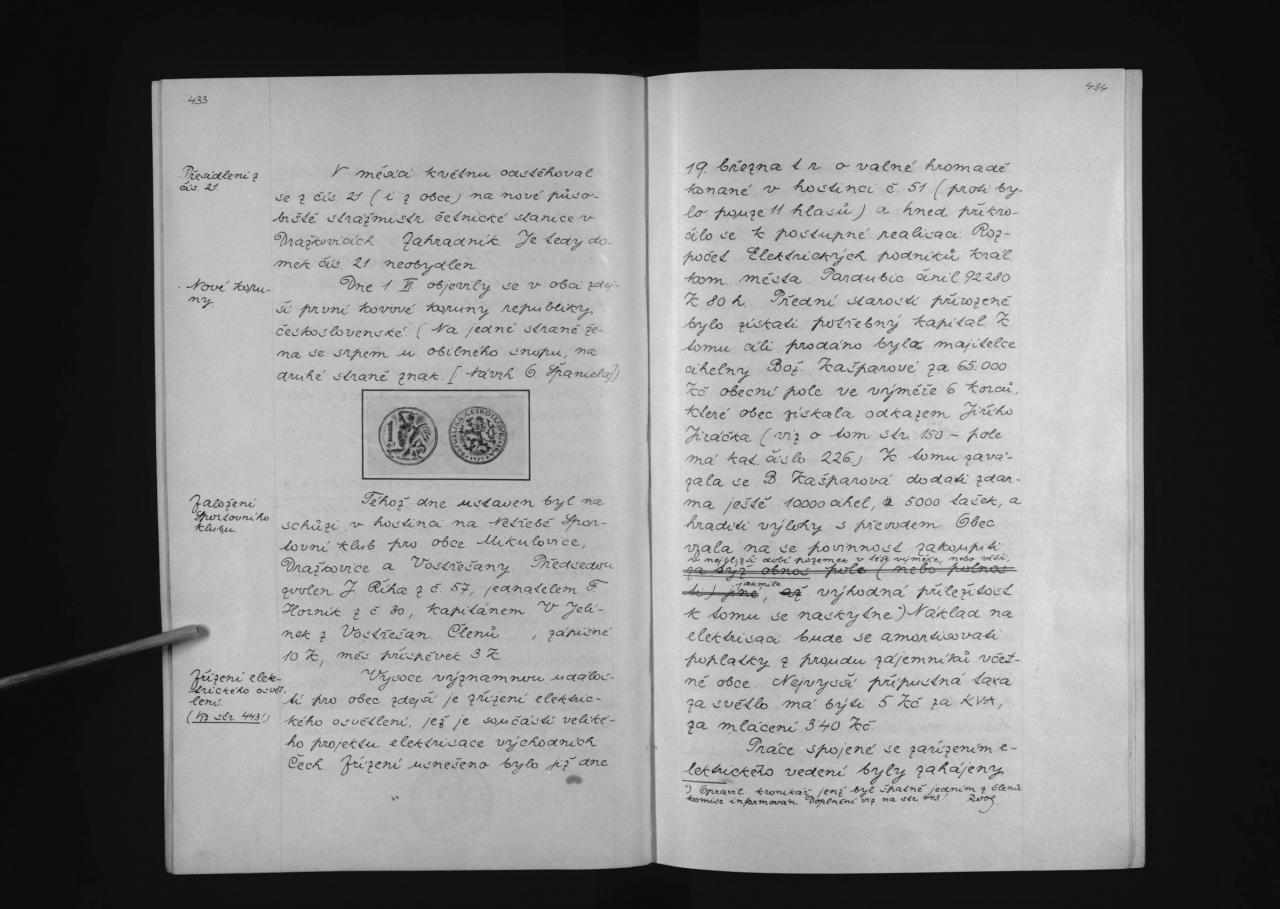 433
Přesídlení z
čís. 21.
V měsíci květnu odstěhoval
se z čís. 21 (i z obce) na nové půso-
biště strážmistr četnické stanice v
Dražkovicích Zahradník. Je tedy do-
mek čís. 21. neobydlen.
Nové koru-
ny.
Dne 1. VI. objevily se v obci zdej-
ší první kovové koruny republiky
československé. (Na jedné straně že-
na se srpem u obilného snopu, na
druhé straně znak. [Návrh O. Španiela])
1
REPUBLIKA ČESKOSLOVENSKÁ
Založení
Sportovního
klubu.
Téhož dne ustaven byl na
schůzi v hostinci na Netřebě Spor-
tovní klub pro obce Mikulovice,
Dražkovice a Vostřešany. Předsedou
zvolen J. Říha z č. 57, jednatelem F.
Horník z č. 30, kapitánem V. Jelí-
nek z Vostřešan. Členů , zápisné
10 K, měs. příspěvek 3 K.
Zřízení elek-
trického osvět-
lení.
(Viz str. 443!)
Vysoce významnou událos-
tí pro obec zdejší je zřízení elektric-
kého osvětlení, jež je součástí veliké-
ho projektu elektrisace východních
Čech. Zřízení usneseno bylo již dne
434
19. března t. r. o valné hromadě
konané v hostinci č. 51 (proti by-
lo pouze 11 hlasů) a hned přikro-
čilo se k postupné realisaci. Roz-
počet Elektrických podniků král.
kom. města Pardubic činil 92280
K 80 h. Přední starostí přirozeně
bylo získati potřebný kapitál. K
tomu cíli prodáno bylo majitelce
cihelny Bož. Kašparové za 65.000
Kč obecní pole ve výměře 6 korců,
které obec získala odkazem Jiřího
Jiráčka (viz o tom str. 150 - pole
má kat. číslo 226.) K tomu zavá-
zala se B. Kašparová dodati zdar-
ma ještě 10000 cihel, 5000 tašek, a
hraditi výlohy s převodem. Obec
vzala na se povinnost zakoupiti
v nejbližší době pozemek v téže výměře, nebo větší,
za týž obnos pole (nebo polnos-
ti) jiné, až jakmile výhodná příležitost
k tomu se naskytne.*) Náklad na
elektrisaci bude se amortisovati
poplatky z proudu zájemníků včet-
ně obce. Nejvyšší přípustná taxa
za světlo má býti 5 Kč za KVA,
za mlácení 3·40 Kč.
Práce spojené se zařízením e-
lektrického vedení byly zahájeny
*) Opravil kronikář, jenž byl špatně jedním z členů
komise informován. Doplnění viz na str. 443!